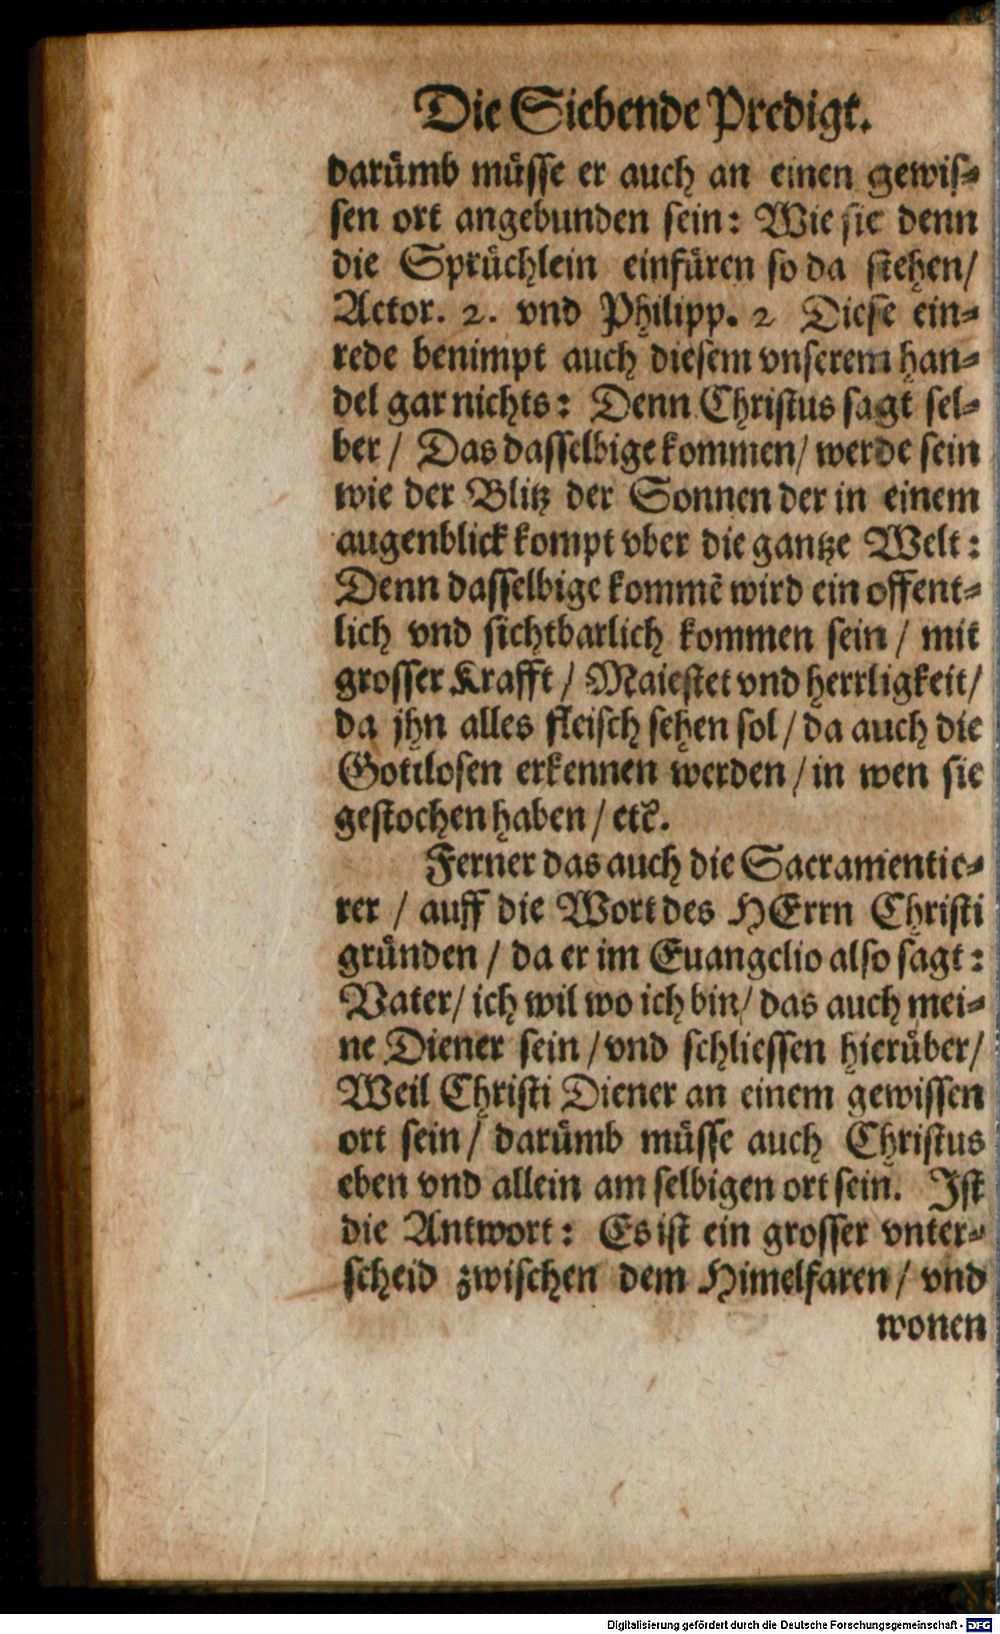 Die Siebende Predigt.
darümb müsse er auch an einen gewis⸗
sen ort angebunden sein: Wie sie denn
die Sprüchlein einfüren so da stehen/
Actor. 2. vnd Philipp. 2 Diese ein⸗
rede benimpt auch diesem vnserem han⸗
del gar nichts: Denn Christus sagt sel⸗
ber / Das dasselbige kommen/ werde sein
wie der Blitz der Sonnen der in einem
augenblick kompt vber die gantze Welt:
Denn dasselbige kommẽ wird ein offent⸗
lich vnd sichtbarlich kommen sein / mit
grosser Krafft / Maiestet vnd herrligkeit/
da jhn alles fleisch sehen sol / da auch die
Gottlosen erkennen werden / in wen sie
gestochen haben / etc̃.
Ferner das auch die Sacramentie⸗
rer / auff die Wort des HErrn Christi
gründen / da er im Euangelio also sagt:
Vater/ ich wil wo ich bin/ das auch mei⸗
ne Diener sein / vnd schliessen hierüber/
Weil Christi Diener an einem gewissen
ort sein / darümb müsse auch Christus
eben vnd allein am selbigen ort sein. Ist
die Antwort: Es ist ein grosser vnter⸗
scheid zwischen dem Himelfaren / vnd
wonen
Digitalisierung gefördert durch die Deutsche Forschungsgemeinschaft - DFG